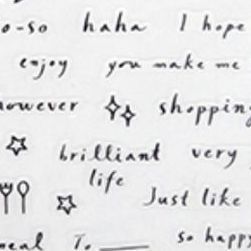 o-so haha I hope
enjoy you make me
however shopping
brilliant very
life
Just like
meal To____ so happy